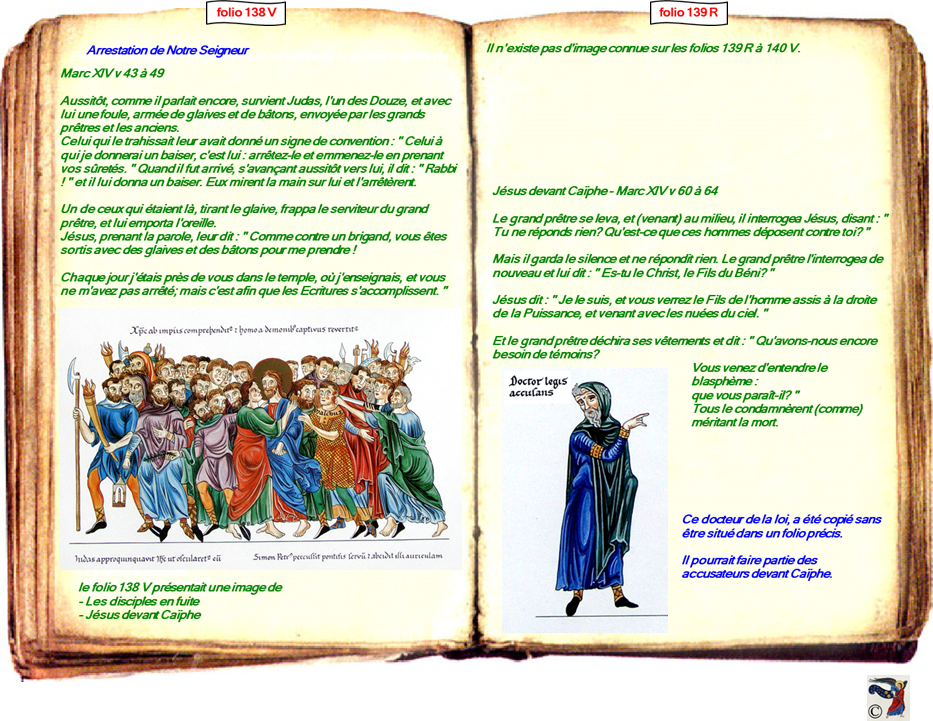 folio 138 V
Arrestation de Notre Seigneur
Marc XIV v 43 à 49
Aussitôt, comme il parlait encore, survient Judas, l'un des Douze, et avec
lui une foule, armée de glaives et de bâtons, envoyée par les grands
prêtres et les anciens.
Celui qui le trahissait leur avait donné un signe de convention : " Celui à
qui je donnerai un baiser, c'est lui : arrêtez-le et emmenez-le en prenant
vos sûretés. " Quand il fut arrivé, s'avançant aussitôt vers lui, il dit : " Rabbi
! " et il lui donna un baiser. Eux mirent la main sur lui et l'arrêtèrent.
Un de ceux qui étaient là, tirant le glaive, frappa le serviteur du grand
prêtre, et lui emporta l'oreille.
Jésus, prenant la parole, leur dit : " Comme contre un brigand, vous êtes
sortis avec des glaives et des bâtons pour me prendre !
Chaque jour j'étais près de vous dans le temple, où j'enseignais, et vous
ne m'avez pas arrêté; mais c'est afin que les Ecritures s'accomplissent. "
ab impiis comprehendit' : homo a demonib' captivus revertit'
malchus
Iudas approquinquavit ut oscularet' eū
Simon Petr' percussit pontificis servū : abscidit illi auriculam
le folio 138 V présentait une image de
- Les disciples en fuite
- Jésus devant Caïphe
folio 139 R
Il n'existe pas d'image connue sur les folios 139 R à 140 V.
Jésus devant Caïphe - Marc XIV v 60 à 64
Le grand prêtre se leva, et (venant) au milieu, il interrogea Jésus, disant : "
Tu ne réponds rien? Qu'est-ce que ces hommes déposent contre toi? "
Mais il garda le silence et ne répondit rien. Le grand prêtre l'interrogea de
nouveau et lui dit : " Es-tu le Christ, le Fils du Béni? "
Jésus dit : " Je le suis, et vous verrez le Fils de l'homme assis à la droite
de la Puissance, et venant avec les nuées du ciel. "
Et le grand prêtre déchira ses vêtements et dit : " Qu'avons-nous encore
besoin de témoins?
Vous venez d'entendre le
blasphème :
que vous paraît-il? "
Tous le condamnèrent (comme)
méritant la mort.
Doctor legis
accusans
Ce docteur de la loi, a été copié sans
être situé dans un folio précis.
Il pourrait faire partie des
accusateurs devant Caïphe.
©